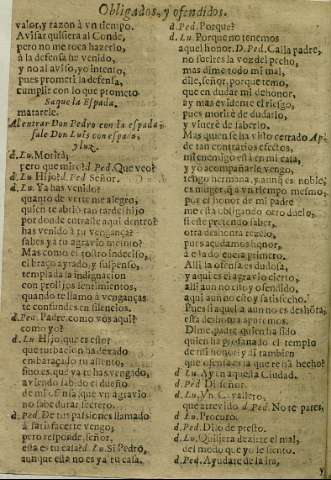 Obligados, y ofendidos.
valor, y razon à vn tiempo.
Avisar quisiera al Conde,
pero no me toca hazerlo,
à la defensa he venido,
y no al aviso, yo intento,
pues prometi la defensa,
cumplir con lo que prometo
Saque la Espada.
matarele.
Al entrar Don Pedro con la espada,
sale Don Luis con espada,
y luz.
d. Lu. Morirà,
pero que miro? d. Ped. Que veo?
d. Lu. Hijo? d. Ped. Señor.
d. Lu. Ya has venido?
quanto de verte me alegro,
quien te abriò tan tarde hijo
por donde entraste aqui dentro?
has venido à tu vengança?
sabes ya tu agravio
Mas como el rostro indeciso,
el braço ayrado, y suspenso,
templada la indignacion
con prolijos sentimientos,
quando te llamo à venganças
te confundes en silencios.
d. Ped. Padre, como vos aqui?
como yo?
d. Lu. Hijo, que es esto?
que turbacion ha dexado
embaraçado tu aliento,
sino es, que ya te has vengido,
aviendo sabido el dueño
de mi ofensa, que vn agravio
no sabe durar secreto.
d. Ped. De tus passiones llamado
à satisfacerte vengo,
pero responde, señor,
esta es tu casa? d. Lu. Si Pedro,
aunque esta no es ya tu casa.
d. Ped. Porque?
d. Lu. Porque no tenemos
aquel honor. D. Ped. Calla padre,
no fueres la voz del pecho,
mas dime todo mi mal,
dile, señor, porque temo,
que en dudar mi deshonor,
ay mas evidente el riesgo,
pues morirè de dudarlo,
y vivirè de saberlo.
Mas quien se ha visto cercado Ap.
de tan contrarios efectos,
mi enemigo està en mi casa,
y yo acompañarle vengo,
tengo hermana, y aunq̃ es noble,
es muger, q̃ à vn tiempo mesmo,
por el honor de mi padre
me està obligando otro duelo,
si este pretendo saber,
otra deshonra creo,
pues acudamos honor,
à el a lo que era primero.
Alli la ofensa es dudosa,
y aqui es el agravio cierto,
alli aun no estoy ofendido,
aqui aun no estoy satisfecho.
Pues si aquella aun no es deshonra,
esta deshonra apuremos.
Dime, padre, quien ha sido
quien ha profanado el templo
de mi honor? y di tambien
que ofensa es la que te ha hecho?
d. Lu. Ay en aquella Ciudad.
d. Ped. Di señor.
d. Lu. Vn Cavallero,
que atrevido d. Ped. No te pares,
d. Lu. Procurò.
d. Ped. Dilo de presto.
d. Lu. Quisiera dezirte el mal,
del modo que yo le siento.
d. Ped. Ayudate de la ira,
y